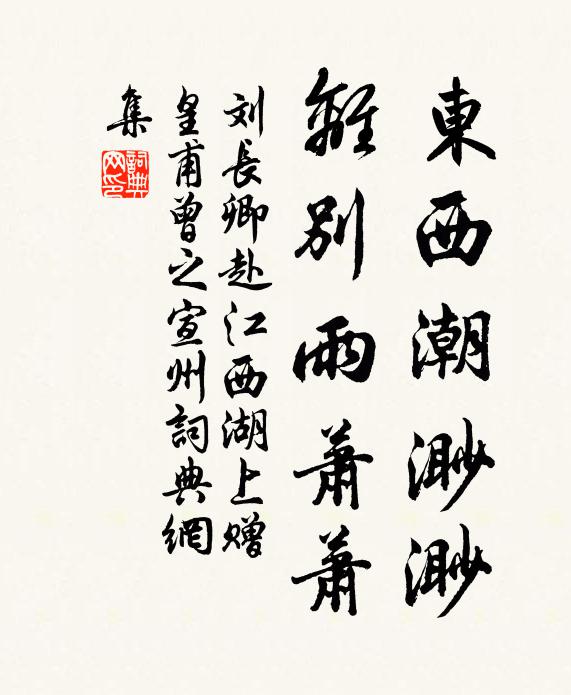 東西潮渺渺
離別雨蕭蕭
刘長卿赴江西湖上赠
皇甫曾之宣州詞典網
集
詞典网印